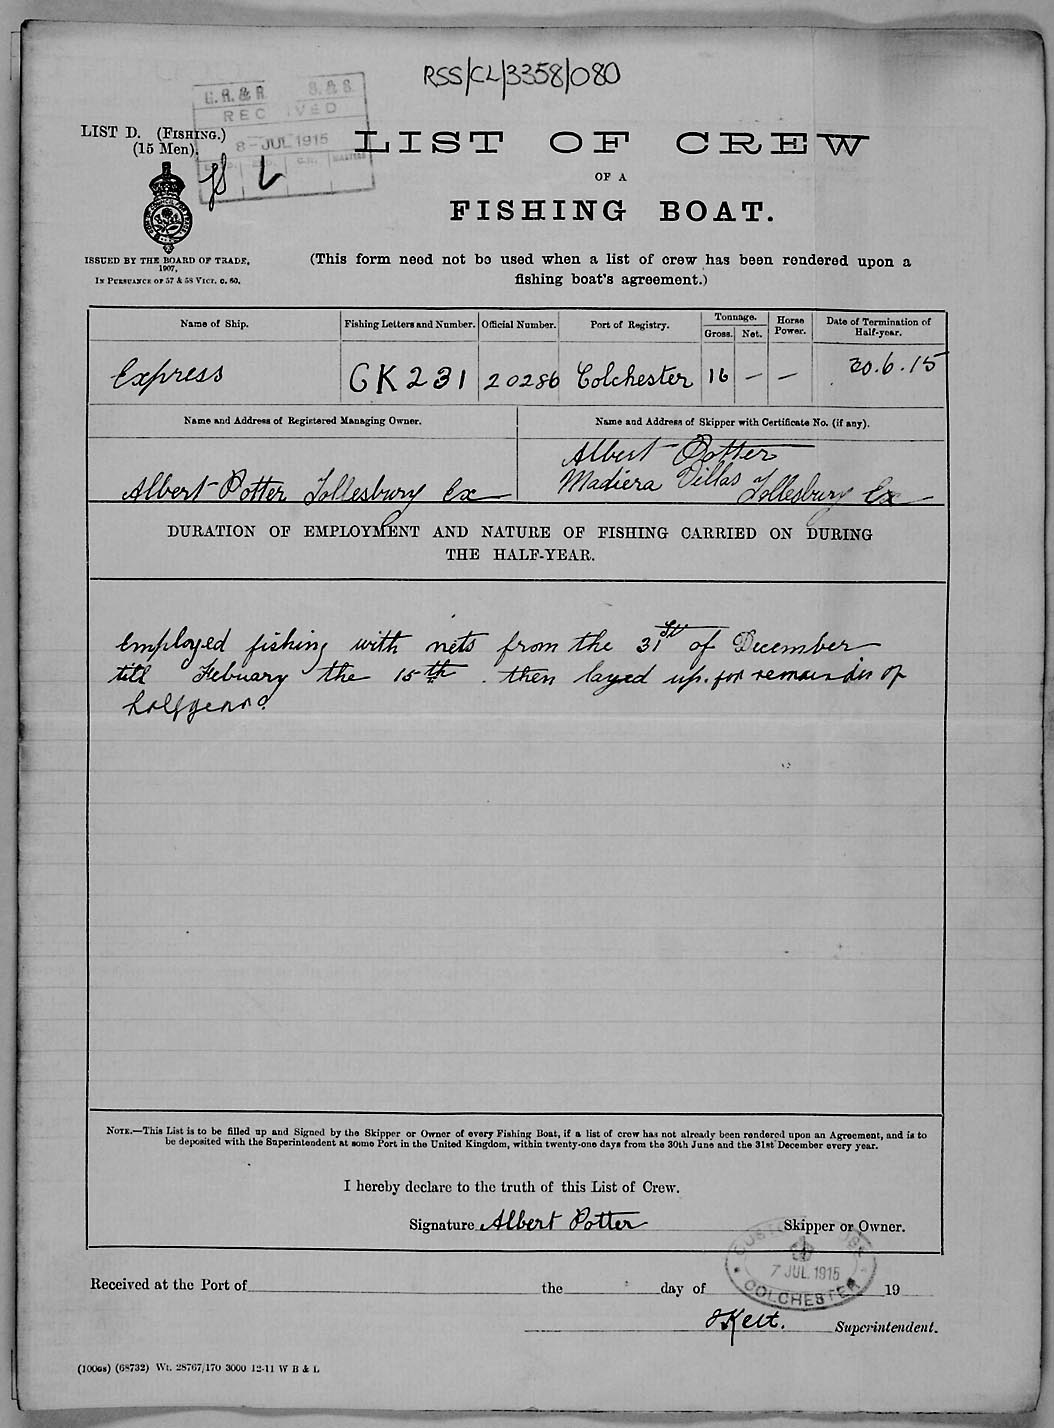 RSS/CL/3358/080
G.R. & R. S. & S.
RECEIVED
8-JUL 1915
LIST D. (FISHING.)
(15 Men).
LIST OF CREW
OF A
FISHING BOAT.
ISSUED BY THE BOARD OF TRADE,
1907,
IN PURSUANCE OF 57 & 58 VICT. C. 60.
(This form need not be used when a list of crew has been rendered upon a
fishing boat's agreement.)
Name of Ship. Fishing Letters and Number. Official Number. Port of Registry. Tonnage. Gross. Net. Horse Power. Date of Termination of Half-year.
Express CK 231 20286 Colchester 16 — — 30.6.15
Name and Address of Registered Managing Owner. Name and Address of Skipper with Certificate No. (if any).
Albert Potter
Albert Potter Tollesbury Ex Madiera Villas Tollesbury Ex
DURATION OF EMPLOYMENT AND NATURE OF FISHING CARRIED ON DURING
THE HALF-YEAR.
Employed fishing with nets from the 31st of December
till Febuary the 15th. then layed up. for remainder of
halfyear.
NOTE.—This List is to be filled up and Signed by the Skipper or Owner of every Fishing Boat, if a list of crew has not already been rendered upon an Agreement, and is to
be deposited with the Superintendent at some Port in the United Kingdom, within twenty-one days from the 30th June and the 31st December every year.
I hereby declare to the truth of this List of Crew.
Signature Albert Potter Skipper or Owner.
CUSTOM HOUSE
7 JUL 1915
COLCHESTER
Received at the Port of the day of 19
Superintendent.
(100GS) (68732) Wt. 28767/170 3000 12-11 W B & L